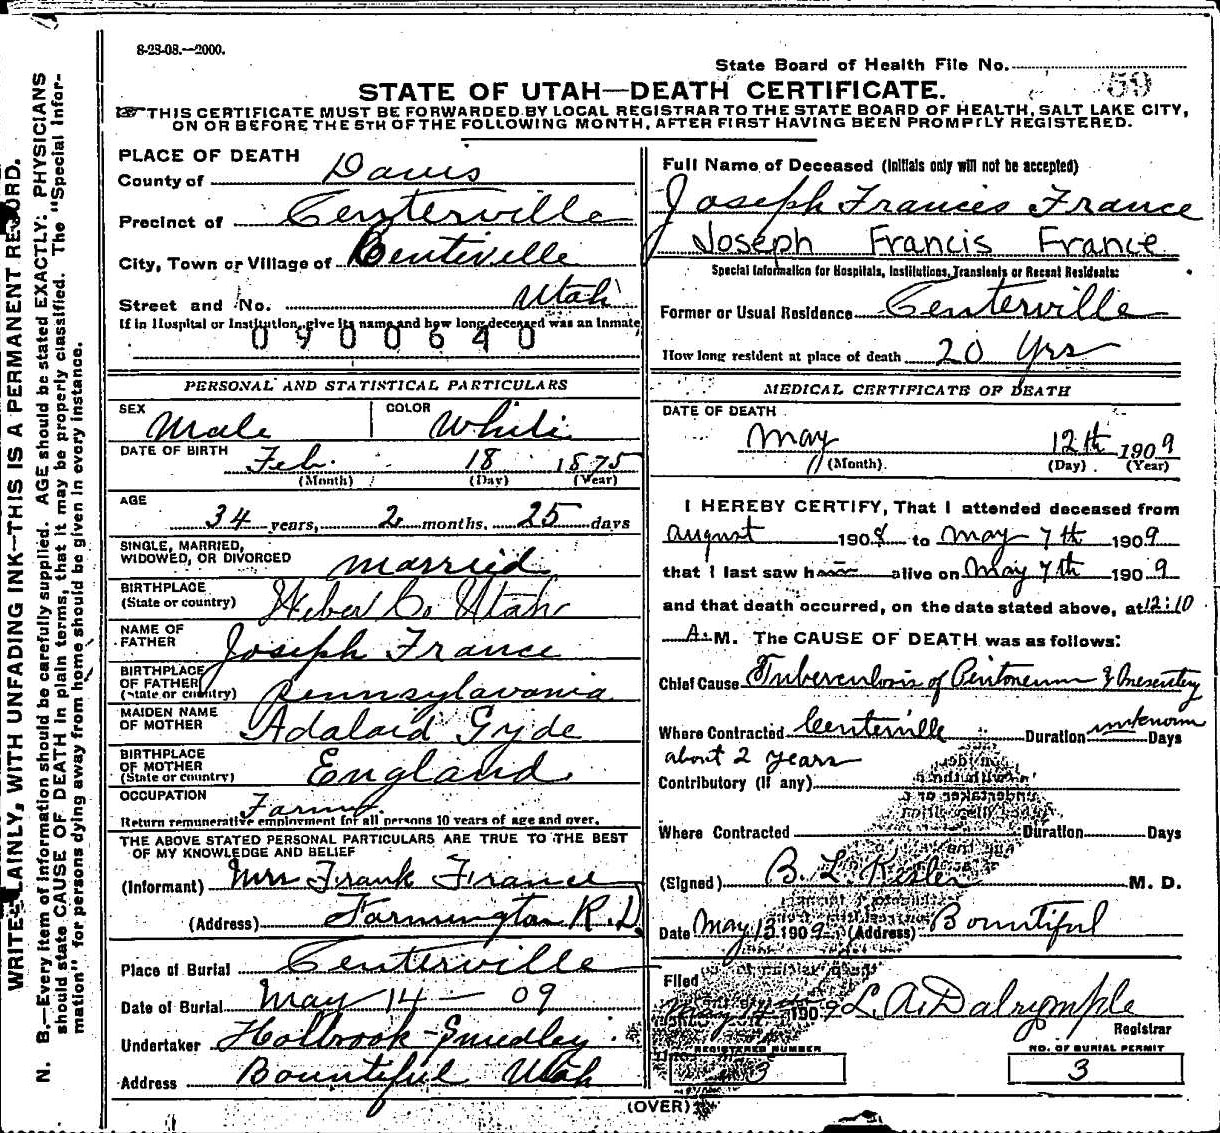 8-23-08.—2000.
State Board of Health File No.
59
STATE OF UTAH—DEATH CERTIFICATE.
THIS CERTIFICATE MUST BE FORWARDED BY LOCAL REGISTRAR TO THE STATE BOARD OF HEALTH, SALT LAKE CITY,
ON OR BEFORE THE 5TH OF THE FOLLOWING MONTH, AFTER FIRST HAVING BEEN PROMPTLY REGISTERED.
WRITE PLAINLY, WITH UNFADING INK—THIS IS A PERMANENT RECORD.
N. B.—Every item of information should be carefully supplied. AGE should be stated EXACTLY: PHYSICIANS
should state CAUSE OF DEATH in plain terms, that it may be properly classified. The "Special Infor-
mation" for persons dying away from home should be given in every instance.
PLACE OF DEATH
County of Davis
Precinct of Centerville
City, Town or Village of Centerville
Street and No. Utah
If in Hospital or Institution, give its name and how long deceased was an inmate
0900640
PERSONAL AND STATISTICAL PARTICULARS
SEX Male COLOR White
DATE OF BIRTH Feb. 18 1875
(Month) (Day) (Year)
AGE
34 years, 2 months, 25 days
SINGLE, MARRIED,
WIDOWED, OR DIVORCED married
BIRTHPLACE
(State or country) Weber Co Utah
NAME OF
FATHER Joseph France
BIRTHPLACE
OF FATHER
(State or country) Pennsylavania
MAIDEN NAME
OF MOTHER Adalaid Gyde
BIRTHPLACE
OF MOTHER
(State or country) England
OCCUPATION Farmer
Return remunerative employment for all persons 10 years of age and over.
THE ABOVE STATED PERSONAL PARTICULARS ARE TRUE TO THE BEST
OF MY KNOWLEDGE AND BELIEF
(Informant) Mrs Frank France
(Address) Farmington R.D.
Place of Burial Centerville
Date of Burial May 14 — 09
Undertaker Holbrook-Smedley
Address Bountiful Utah
Full Name of Deceased (Initials only will not be accepted)
Joseph Francis France
Joseph Francis France
Special Information for Hospitals, Institutions, Transients or Recent Residents:
Former or Usual Residence Centerville
How long resident at place of death 20 Yrs
MEDICAL CERTIFICATE OF DEATH
DATE OF DEATH
May 12th 1909
(Month). (Day). (Year)
I HEREBY CERTIFY, That I attended deceased from
August 1908 to May 7th 1909
that I last saw him alive on May 7th 1909
and that death occurred, on the date stated above, at 12:10
A. M. The CAUSE OF DEATH was as follows:
Chief Cause Tuberculosis of Peritoneum & Mesentery
Where Contracted Centerville Duration unknown Days
about 2 years
Contributory (if any)
Where Contracted Duration Days
(Signed) B. L. Kesler M. D.
Date May 13 1909. (Address) Bountiful
Filed
May 14 1909 L. A. Dalrymple
Registrar
REGISTERED NUMBER
3
NO. OF BURIAL PERMIT
3
(OVER)